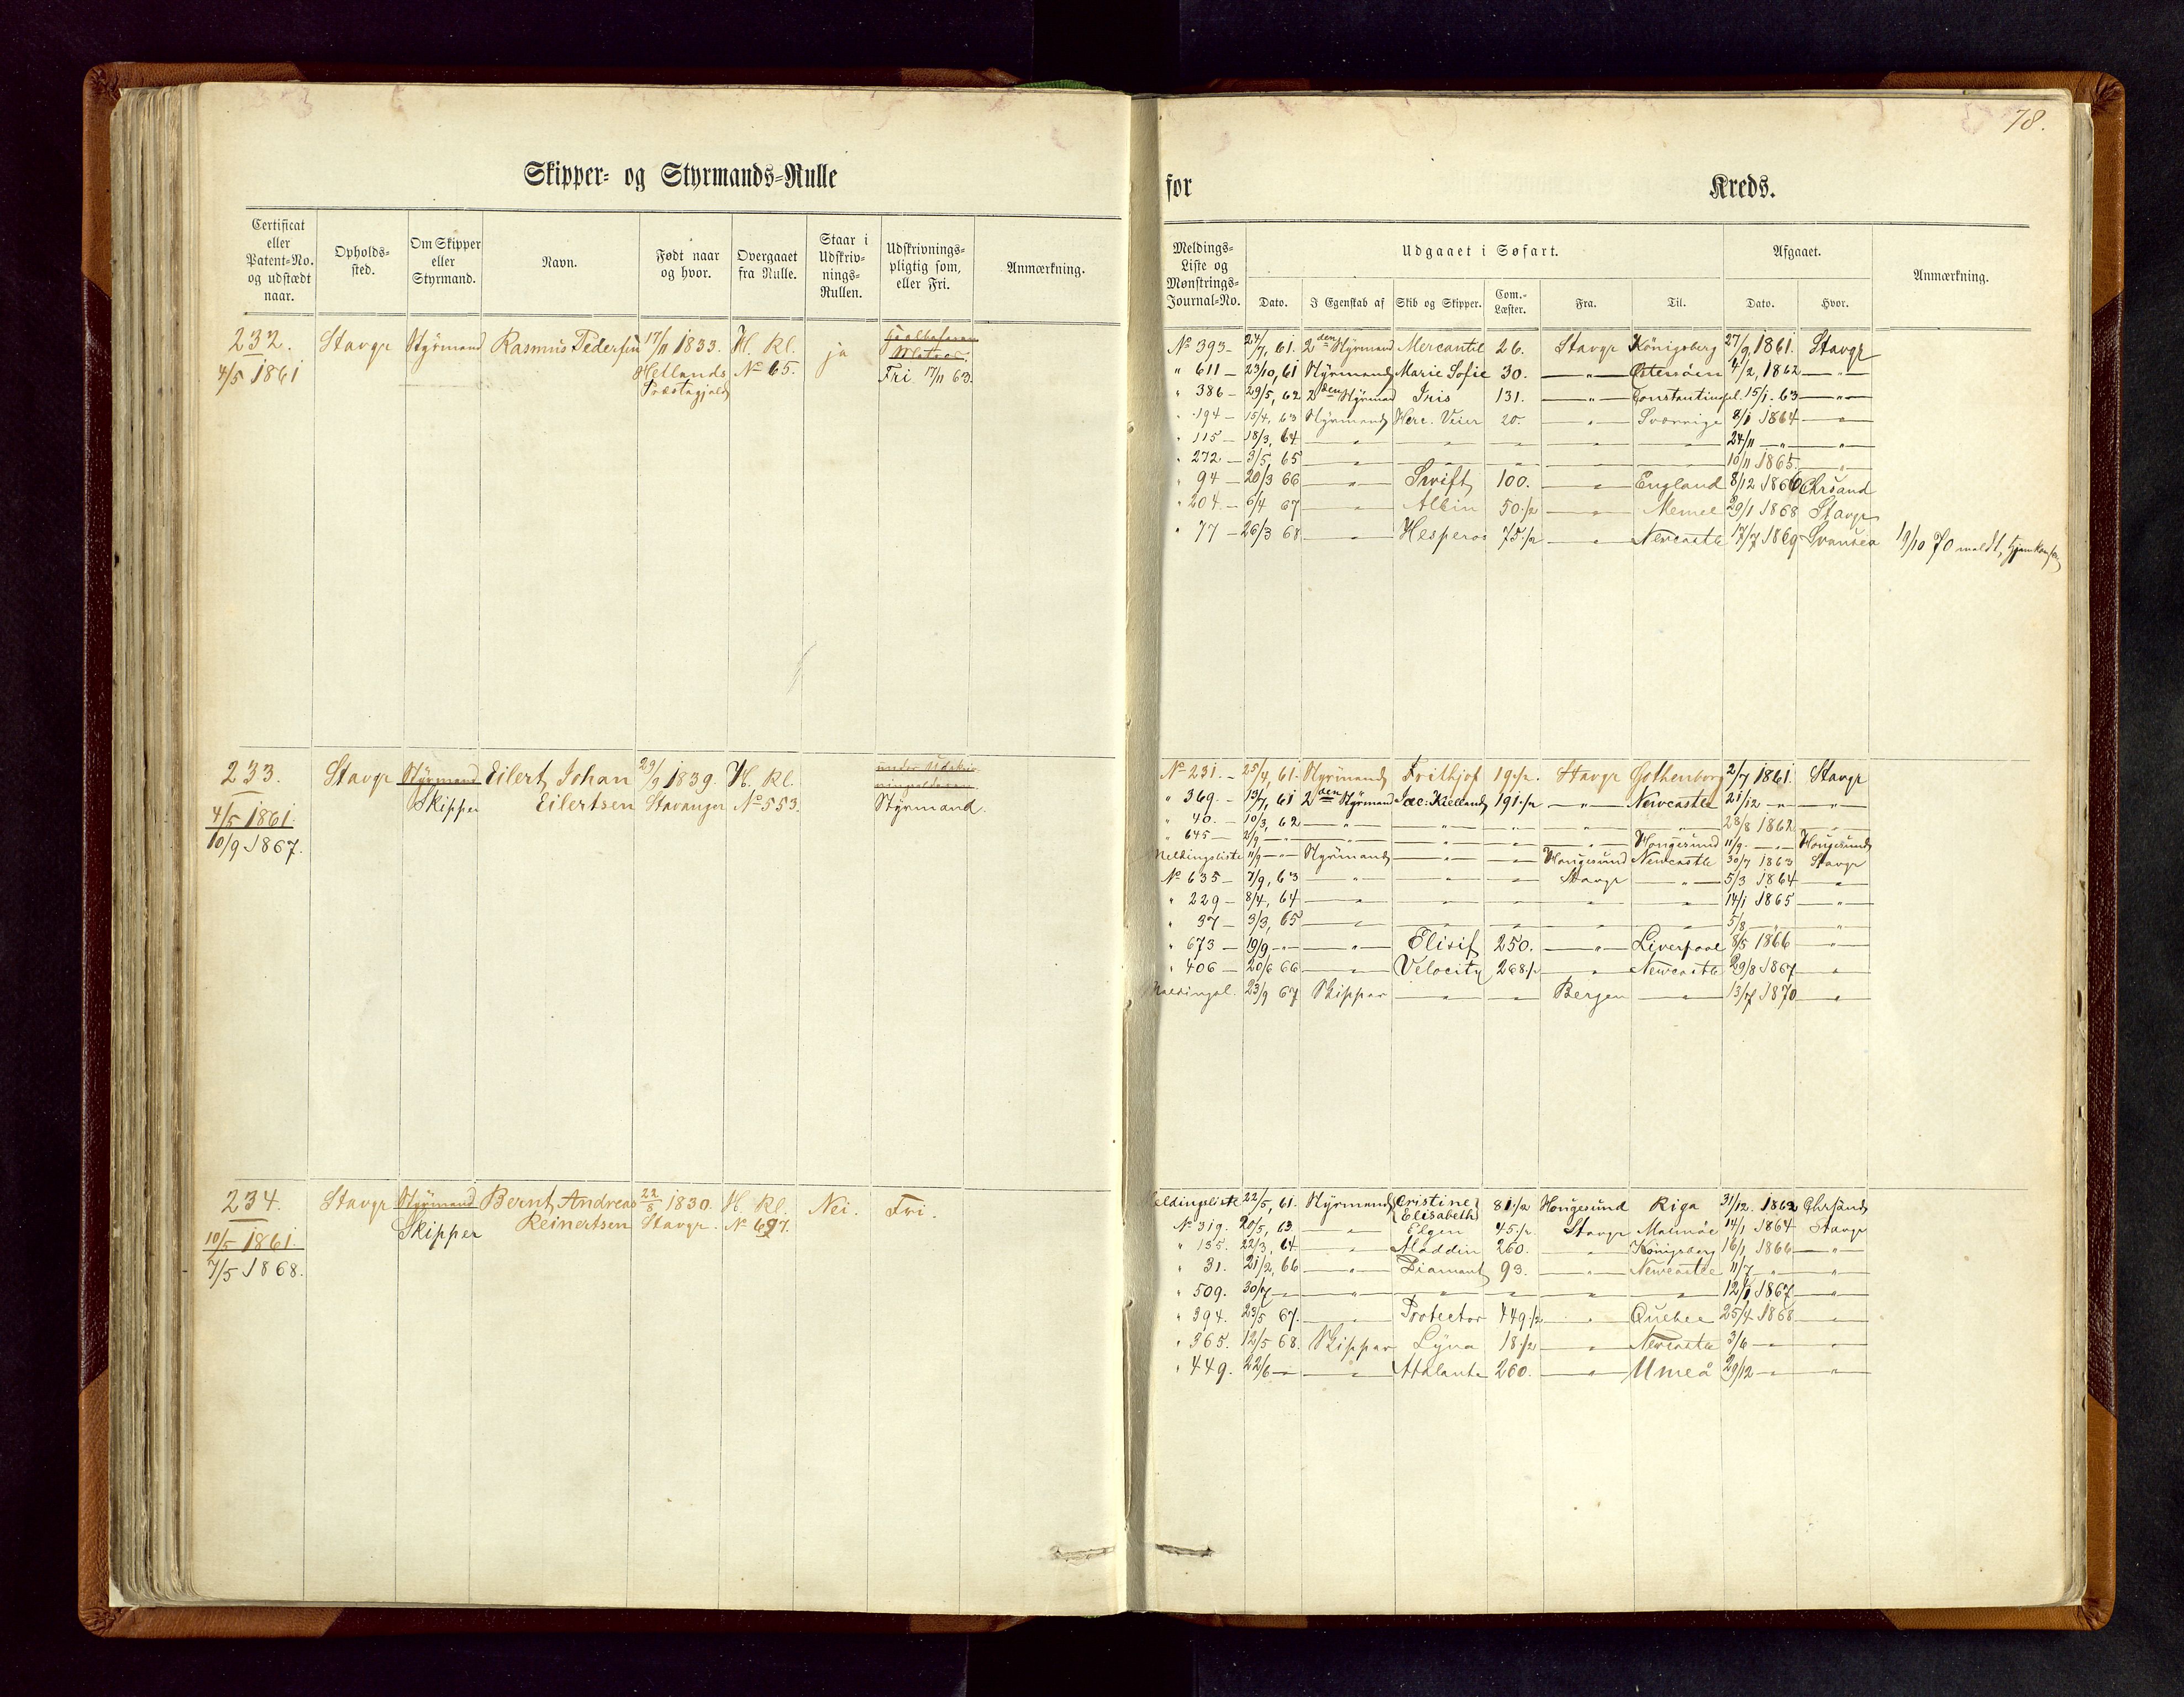 78.
Skipper- og Styrmands-Rulle
for Kreds.
Certificat eller Patent-No. og udstædt naar. | Opholds-sted. | Om Skipper eller Styrmand. | Navn. | Født naar og hvor. | Overgaaet fra Rulle. | Staar i Udskriv-nings-Rullen. | Udskrivnings-pligtig som, eller Fri. | Anmærkning.
Meldings-Liste og Mønstrings-Journal-No. | Udgaaet i Søfart. | Afgaaet. | Anmærkning.
Dato. | I Egenskab af | Skib og Skipper. | Com.-Læster. | Fra. | Til. | Dato. | Hvor.
232. Stavgr Styrmand Rasmus Pedersen 17/11 1833. H. Kl. ja
4/5 1861 Hetlands No 65. Matros. Fri 17/11 63.
Præstegjeld
No 393 – 24/7, 61. 2den Styrmand Mercantil 26. Stavgr Königsberg 27/9, 1861. Stavgr
" 611 – 23/10, 61 Styrmand Marie Sofie 30. — " — 4/2, 1862 — " —
" 386 – 29/5, 62 2den Styrmand Iris 131. — " — Constantinopel. 15/1. 63 — " —
" 194 – 15/4, 63 Styrmand Herc. Veier 20. — " — Sverrige 8/1 1864 — " —
" 115 – 18/3, 64 — " — — " — — " — — " — — " — 24/11 — " — — " —
" 272 – 3/5, 65 — " — — " — — " — — " — — " — 10/11 1865. — " —
" 94 – 20/3 66 — " — Swift 100. — " — England 8/12 1866 Chrsand
" 204 – 6/4 67 — " — Albin 50 1/2 — " — Memel 29/1 1868 Stavgr
" 77 – 26/3 68 — " — Hesperos 75 1/2 — " — Newcastle 17/7 1869 Svansea 19/10 70 meldt,
233. Stavgr Styrmand Eilert Johan 29/9 1839. H. Kl. under Udskriv-
Skipper Eilertsen Stavanger No 553. ningsalderen
4/5 1861. Styrmand.
10/9 1867.
No 231. – 25/4, 61. Styrmand Frithjof 19 1/2. Stavgr Gothenborg 2/7 1861. Stavgr
" 369. – 19/7, 61 2den Styrmand Jac: Kielland 191 1/2 — " — Newcastle 21/12 — " — — " —
" 40. – 10/3, 62 — " — — " — — " — — " — — " — 28/8 1862 — " —
" 645 – 2/9 — " — — " — — " — — " — — " — Hougesund 11/9. — " — Hougesund
Meldingsliste 11/9 — " — Styrmand — " — — " — Hougesund Newcastle 30/7 1863 Stavgr
No 635 – 7/9, 63 — " — — " — — " — Stavgr — " — 5/3 1864 — " —
" 229 – 8/4, 64 — " — — " — — " — — " — — " — 14/1 1865 — " —
" 37 – 3/3, 65 — " — — " — — " — — " — — " — 5/8 — " — — " —
" 673 – 19/9 — " — — " — Elisif 250. — " — Liverpool 8/5 1866 — " —
" 406 – 20/6 66 — " — Velocity 268 1/2 — " — Newcastle 29/8 1867 — " —
Meldingsl. 23/9 67 Skipper — " — — " — Bergen — " — 13/7 1870 — " —
234. Stavgr Styrmand Bernt Andreas 22/8 1830. H. Kl. Nei. Fri.
Skipper Reinertsen Stavgr. No 697.
10/5 1861.
7/5 1868.
Meldingsliste 22/5, 61. Styrmand Cristine Elisabeth 81 1/2 Hougesund Riga 31/12. 1862 Chrsand
No 319. 20/5, 63 — " — Elgen 45 1/2 Stavgr Malmøe 14/1 1864 Stavgr
" 135. 22/3, 64 — " — Aladdin 260. — " — Königsberg 16/1, 1866 — " —
" 31. 21/2, 66 — " — Diamant 93. — " — Newcastle 11/7 — " — — " —
" 509. 30/7 — " — — " — — " — — " — — " — — " — 12/1 1867 — " —
" 394. 23/5 67. — " — Protector 449 1/2 — " — Quebec 25/4 1868 — " —
" 365. 12/5 68. Skipper Lyna 18 1/2 — " — Newcastle 3/6 — " — — " —
" 449. 22/6 — " — — " — Atalante 260. — " — Umeå 29/12 — " — — " —